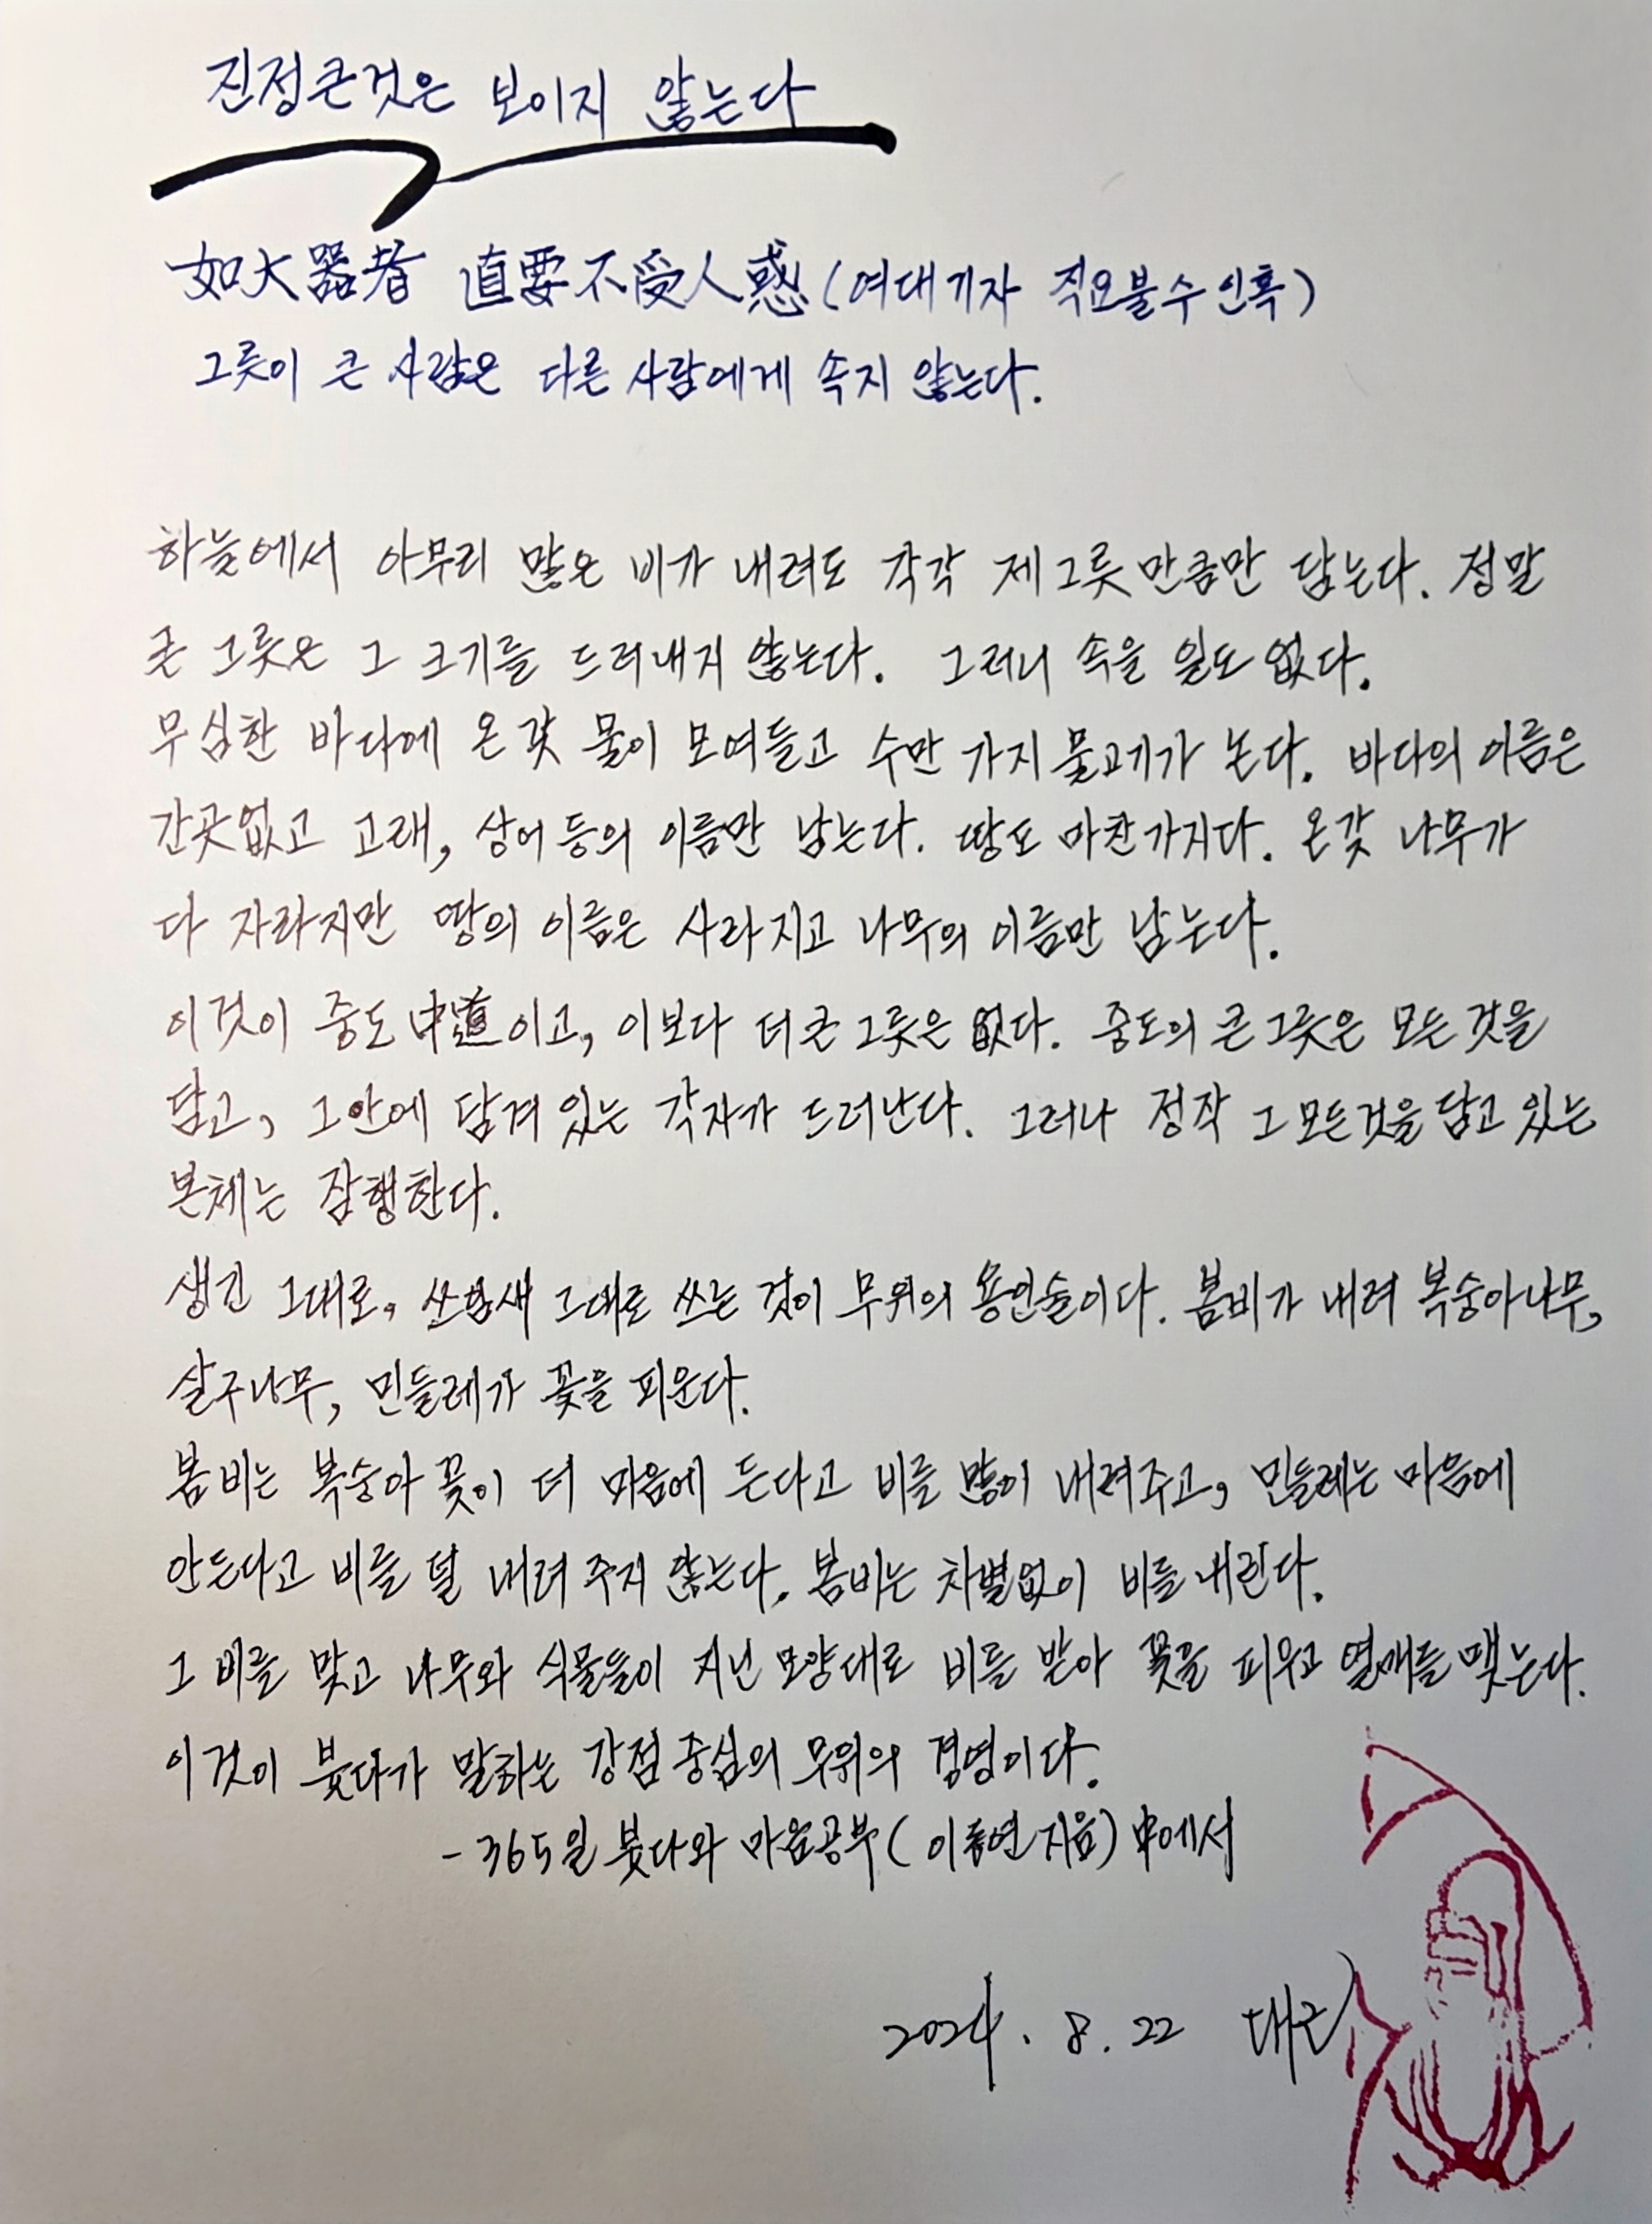 진정큰것은 보이지 않는다
如大器者 直要不受人惑 (여대기자 직요불수인혹)
그릇이 큰 사람은 다른 사람에게 속지 않는다.
하늘에서 아무리 많은 비가 내려도 각각 제 그릇 만큼만 담는다. 정말
큰 그릇은 그 크기를 드러내지 않는다. 그러니 속을 일도 없다.
무심한 바다에 온갖 물이 모여들고 수만 가지 물고기가 논다. 바다의 이름은
간곳없고 고래, 상어 등의 이름만 남는다. 땅도 마찬가지다. 온갖 나무가
다 자라지만 땅의 이름은 사라지고 나무의 이름만 남는다.
이것이 중도 中道이고, 이보다 더 큰 그릇은 없다. 중도의 큰 그릇은 모든 것을
담고, 그 안에 담겨 있는 각자가 드러난다. 그러나 정작 그 모든것을 담고 있는
본체는 잠행한다.
생긴 그대로, 쓰임새 그대로 쓰는 것이 무위의 용인술이다. 봄비가 내려 복숭아나무,
살구나무, 민들레가 꽃을 피운다.
봄비는 복숭아 꽃이 더 마음에 든다고 비를 많이 내려주고, 민들레는 마음에
안든다고 비를 덜 내려 주지 않는다. 봄비는 차별없이 비를 내린다.
그 비를 맞고 나무와 식물들이 지닌 모양대로 비를 받아 꽃을 피우고 열매를 맺는다.
이것이 붓다가 말하는 강점 중심의 무위의 경영이다.
- 365일 붓다와 마음공부 ( 이동연 지음) 中에서
2024. 8. 22 대근